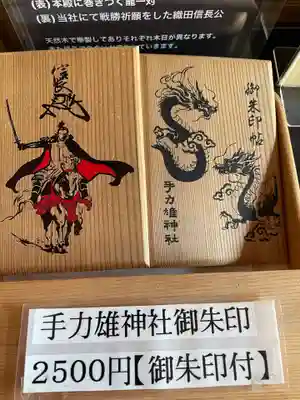 (表)本殿に巻きつく龍一対
(裏)当社にて戦勝祈願をした織田信長公
天然木で華製してありそれぞれ木目が異なります。
御朱印帖
手力雄神社
手力雄神社御朱印
2500円【御朱印付】